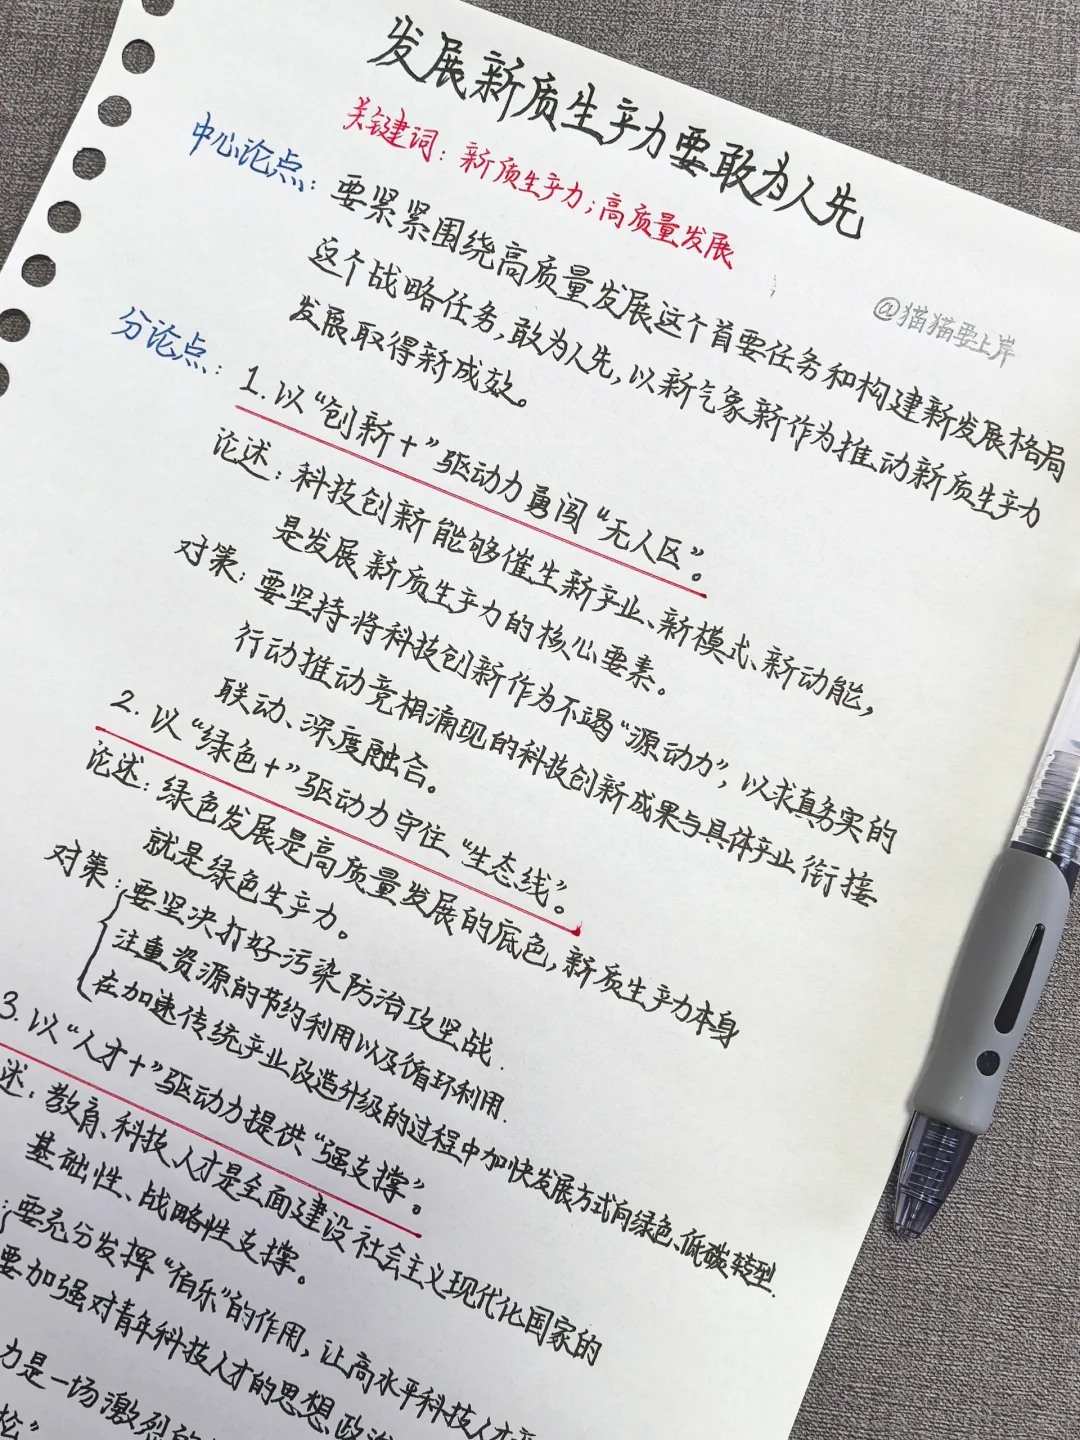 发展新质生产力要敢为人先
关键词：新质生产力；高质量发展
中心论点：要紧紧围绕高质量发展这个首要任务和构建新发展格局
这个战略任务，敢为人先，以新气象新作为推动新质生产力
发展取得新成效。
@猫猫要上岸
分论点：1.以“创新+”驱动力勇闯“无人区”。
论述：科技创新能够催生新产业、新模式、新动能，
是发展新质生产力的核心要素。
对策：要坚持将科技创新作为不竭“源动力”，以求真务实的
行动推动竞相涌现的科技创新成果与具体产业衔接
联动、深度融合。
2.以“绿色+”驱动力守住“生态线”。
论述：绿色发展是高质量发展的底色，新质生产力本身
就是绿色生产力。
对策：要坚决打好污染防治攻坚战.
注重资源的节约利用以及循环利用.
在加速传统产业改造升级的过程中加快发展方式向绿色、低碳转型.
3.以“人才+”驱动力提供“强支撑”。
述：教育、科技、人才是全面建设社会主义现代化国家的
基础性、战略性支撑。
：要充分发挥“伯乐”的作用，让高水平科技人才
要加强对青年科技人才的思想政治
力是一场激烈的
松”